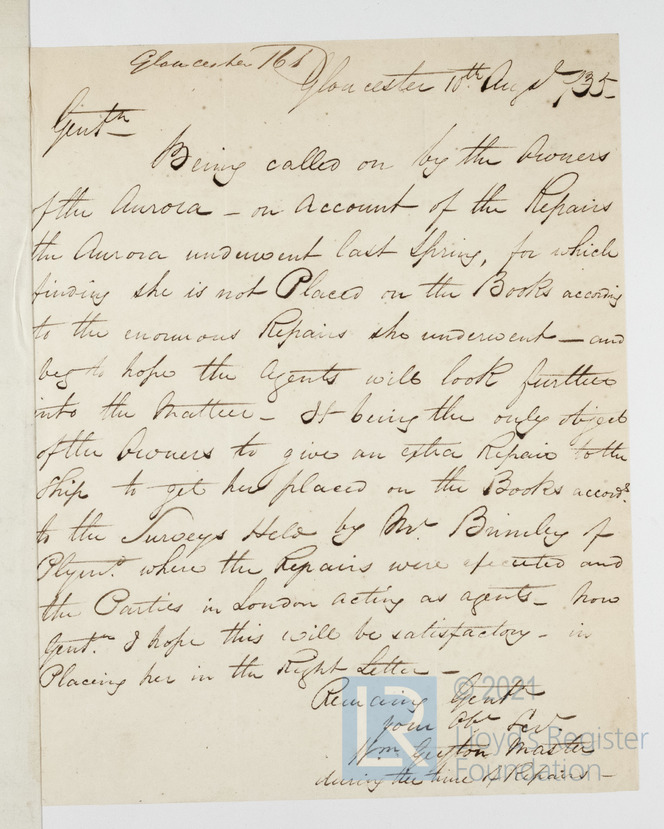 Gloucester 161
Gloucester 10th Augst 1835
Gentn
Being called on by the Owners
of the Aurora - on Account of the Repairs
the Aurora underwent last Spring, for which
finding she is not Placed on the Books according
to the enormous Repairs she underwent - and
beg to hope the Agents will look further
into the Matter - It being the only object
of the Owners to give an extra Repair to the
Ship to get her placed on the Books accordg
to the Surveys Held by Mr. Brimley of
Plymo. where the Repairs were executed and
the Parties in London acting as agents - now
Gentn. I hope this will be satisfactory - in
Placing her in the Right Letter -
Remaing Gentn
your Obt Servt
Wm Master
during the time of Repairs -
LR
© 2021
Lloyd's Register
Foundation